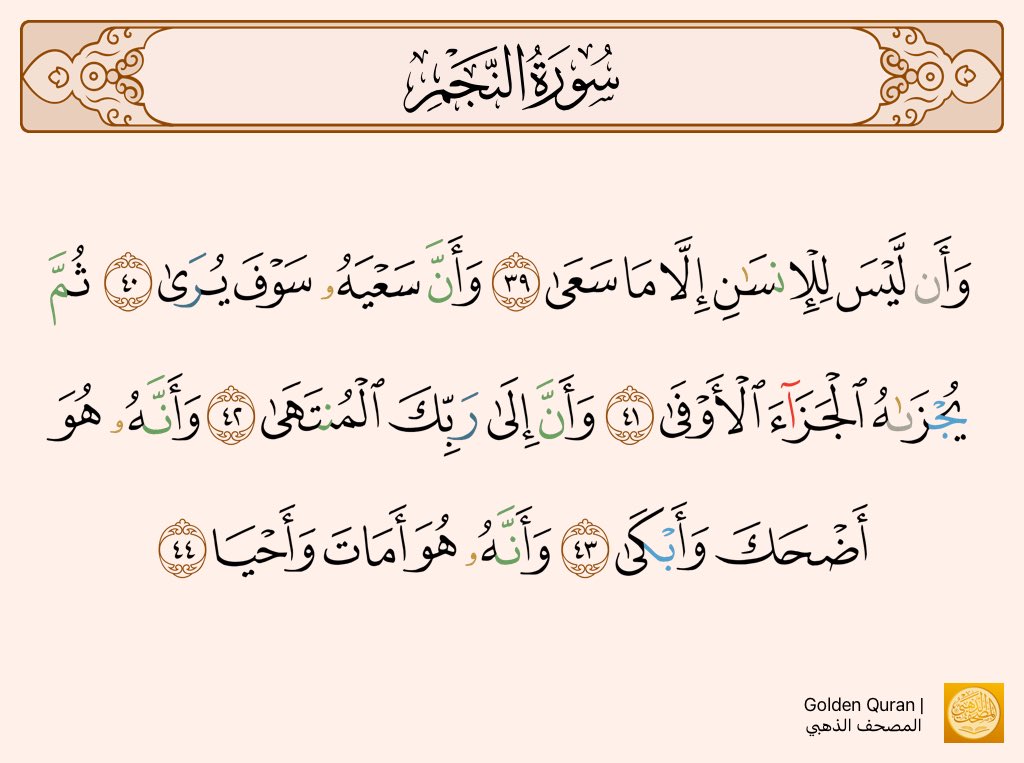 سُورَةُ النَّجْمِ
وَأَن لَّيْسَ لِلْإِنسَـٰنِ إِلَّا مَا سَعَىٰ ٣٩ وَأَنَّ سَعْيَهُۥ سَوْفَ يُرَىٰ ٤٠ ثُمَّ
يُجْزَىٰهُ ٱلْجَزَآءَ ٱلْأَوْفَىٰ ٤١ وَأَنَّ إِلَىٰ رَبِّكَ ٱلْمُنتَهَىٰ ٤٢ وَأَنَّهُۥ هُوَ
أَضْحَكَ وَأَبْكَىٰ ٤٣ وَأَنَّهُۥ هُوَ أَمَاتَ وَأَحْيَا ٤٤
Golden Quran |
المصحف الذهبي
المصحف الذهبي